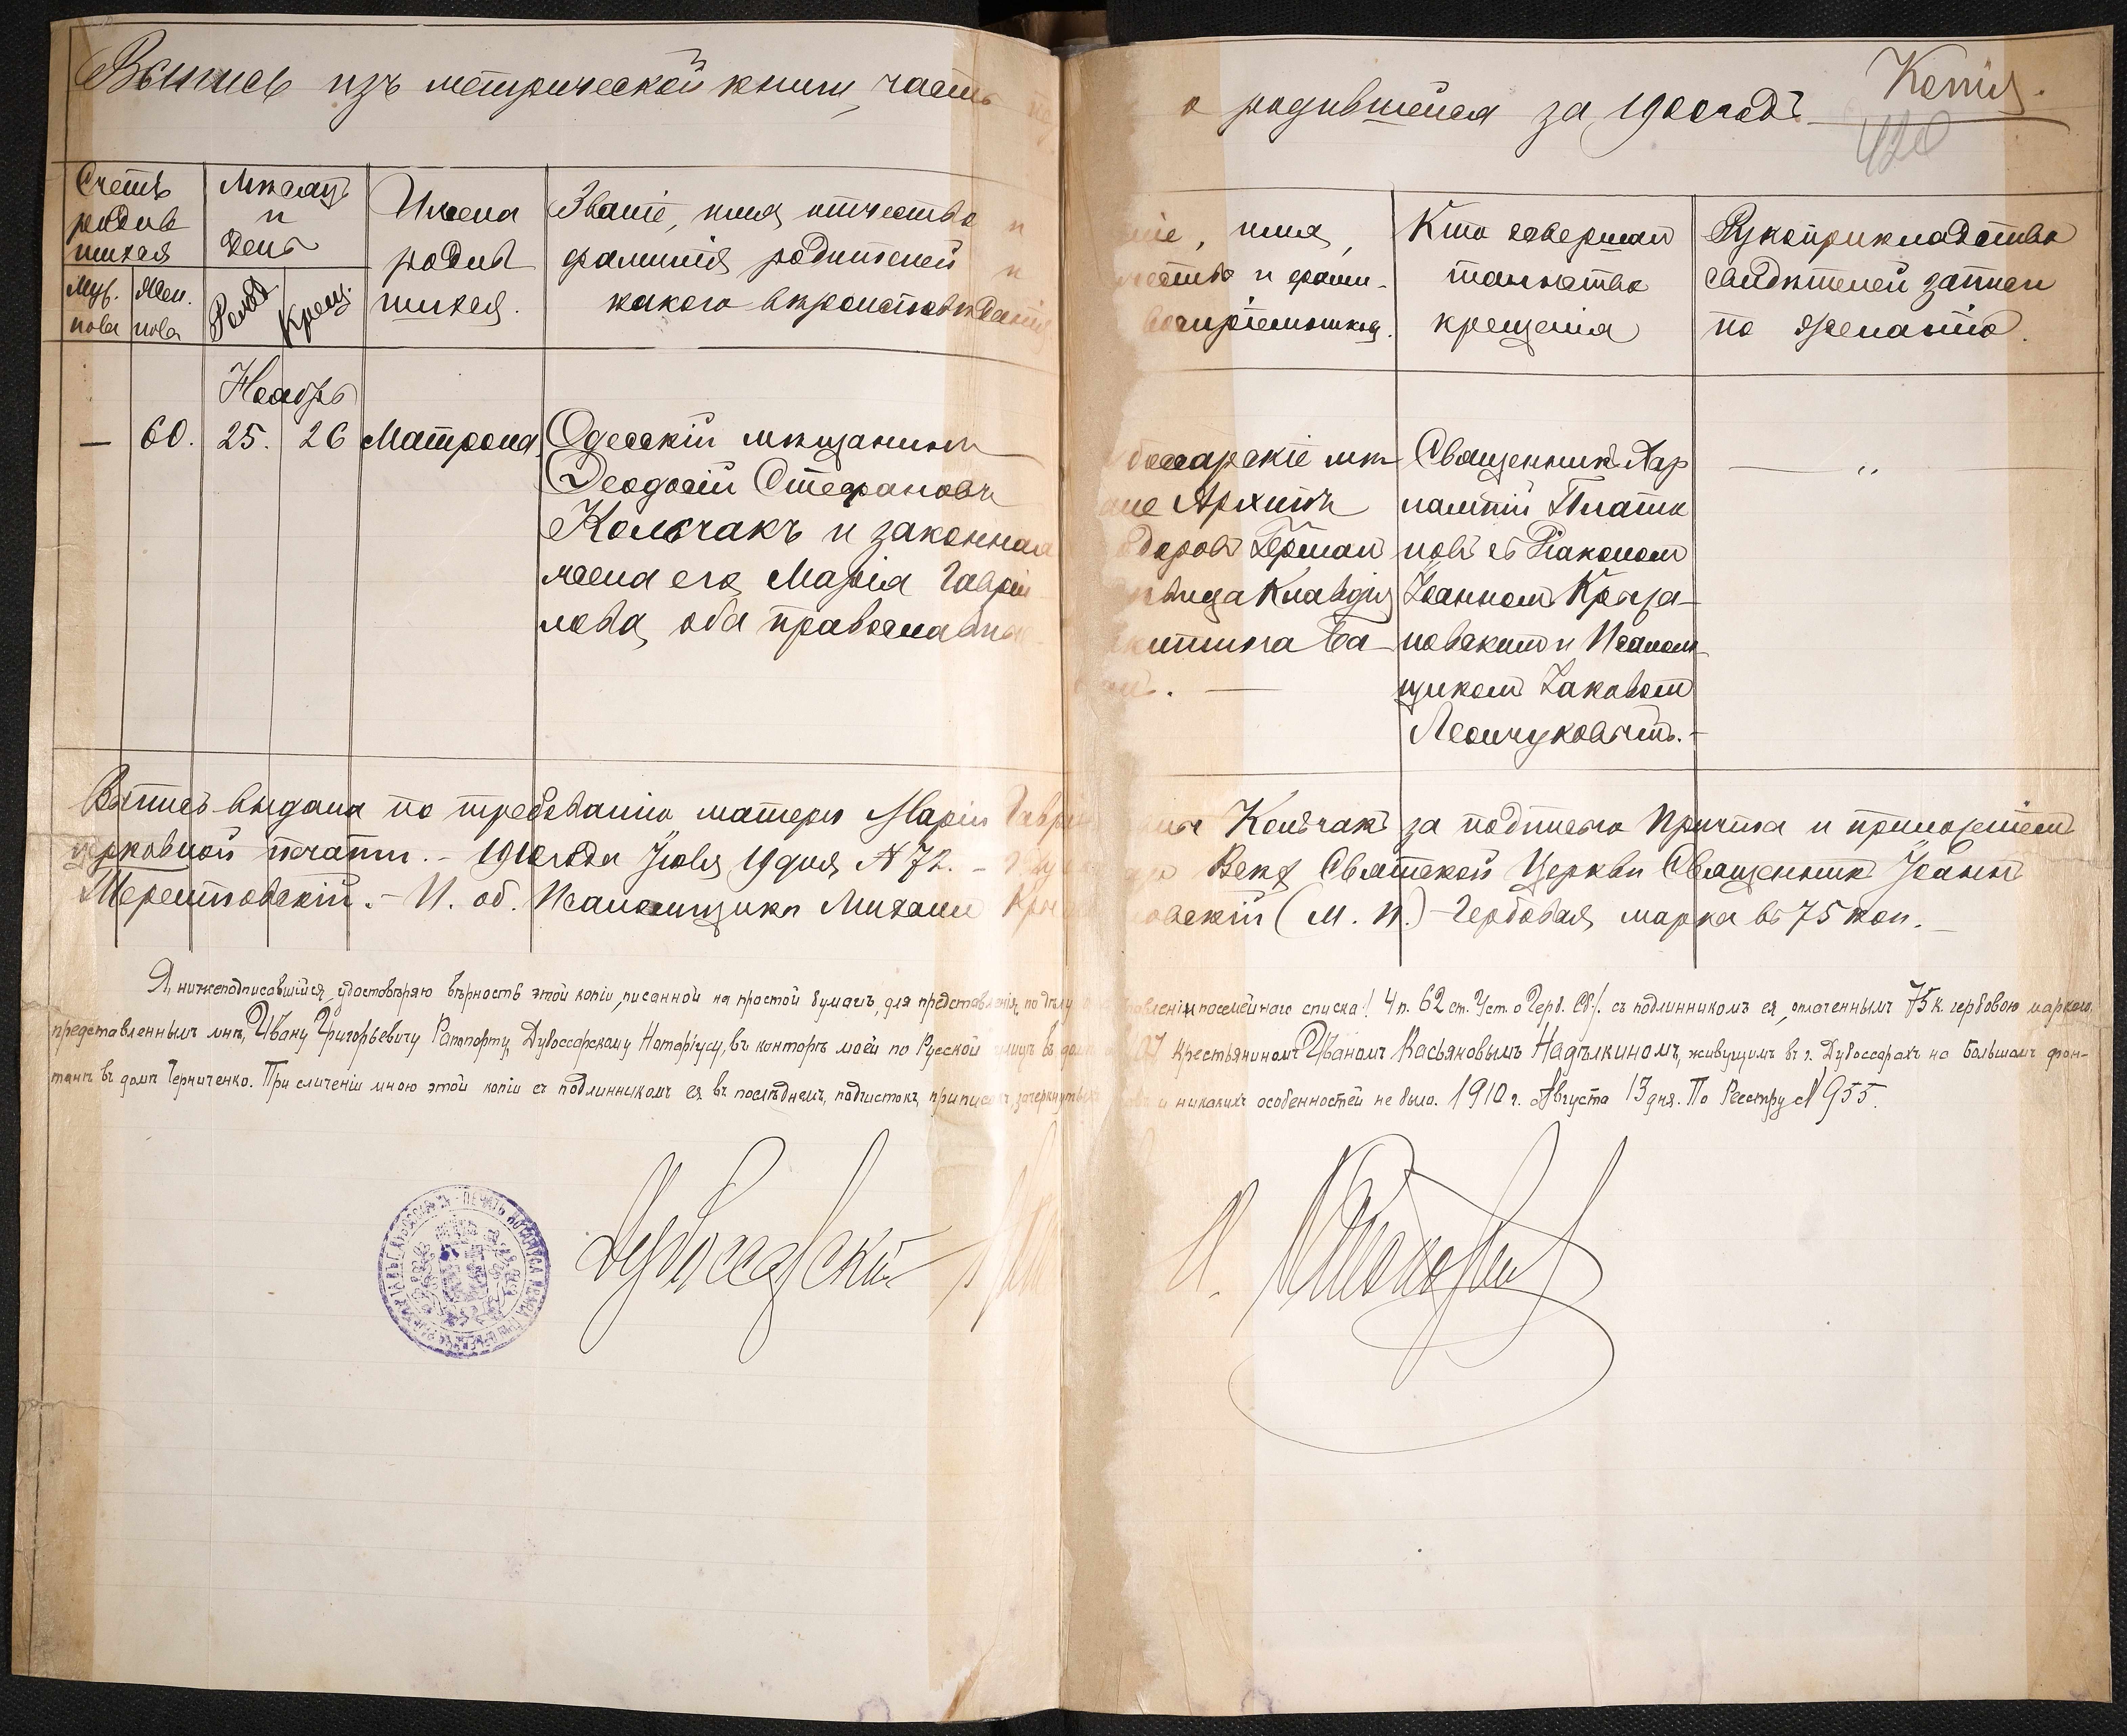 Выпись изъ метрической книги, часть
о родившейся за 1900 годъ
Копія.
420
Счетъ
родив
шихся
Муж.
пола
Жен.
пола
Мѣсяцъ
и
день
Рожд.
Крещ.
Имена
родив
шихся.
Званіе, имя, отчество и
фамилія родителей и
какого вѣроисповѣданія
ніе, имя,
чество и фами-
воспріемниковъ.
Кто совершал
таинство
крещенія
Рукоприкладство
свидѣтелей записи
по желанію.
Ноябрь
—
60.
25.
26
Матрона
Одесскій мѣщанинъ
Ѳеодосій Стефановъ
Кольчакъ и законная
жена его Марія Гаврій
лова, оба православные
боссарскіе мѣ
не Архипъ
одоровъ Герман
вица Клавдія
Священникъ Хар
лампій Платко
новъ съ Діакономъ
Іоанномъ Крыжа-
новскимъ и Псалом
щикомъ Іаковомъ
Леончуковымъ.-
— „
Выпись выдана по требованію матери Маріи Гаври
Кольчакъ за подписью Причта и приложеніемъ
церковной печати. - 1910 года Іюля 19 дня № 72. -
Всѣх Святской Церкви Священникъ Іоаннъ
И. об. Псаломщика Михаилъ Кры
овскій (М. П.) - Гербовая марка въ 75 коп.
Я, нижеподписавшійся, удостовѣряю вѣрность этой копіи, писанной на простой бумагѣ, для представленія, по дѣлу
посемейнаго списка /4 п. 62 ст. Уст. о Герб. Сб./ съ подлинникомъ ея, оплаченнымъ 75 к. гербовою маркою,
представленнымъ мнѣ, Ивану Григорьевичу Рапопорту, Дубоссарскому Нотаріусу, въ конторѣ моей по Русской улицѣ въ домѣ
крестьяниномъ Иваномъ Касьяновымъ Надѣлкиномъ, живущимъ въ г. Дубоссарахъ на Большомъ фон-
танѣ въ домѣ Черниченко. При сличеніи мною этой копіи съ подлинникомъ ея въ послѣднемъ, подчистокъ, приписокъ, зачеркнутыхъ
и никакихъ особенностей не было. 1910 г. Августа 13 дня. По Реестру № 955.
Дубоссарскій